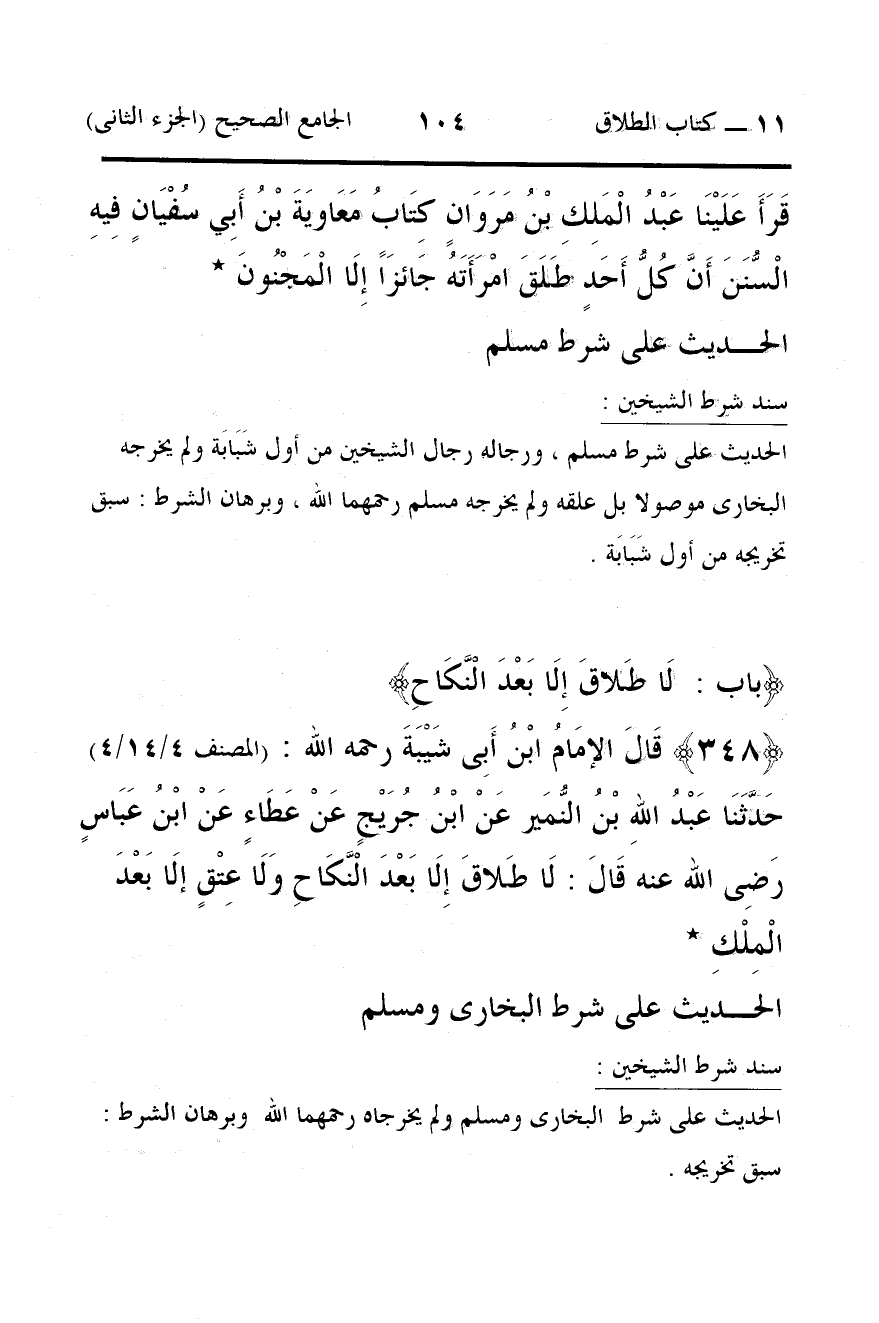 ١١ ــ كتاب الطلاق ١٠٤ الجامع الصحيح (الجزء الثانى)
قَرَأَ عَلَيْنَا عَبْدُ الْمَلِكِ بْنُ مَرَوَانٍ كِتَابُ مَعَاوِيَةَ بْنُ أَبِي سُفْيَانٍ فِيهِ
الْسُّنَنَ أَنَّ كُلُّ أَحَدٍ طَلَقَ امْرَأَتَهُ جَائِزَاً إِلَا الْمَجْنُونَ *
الحـــديث على شرط مسلم
سند شرط الشيخين :
الحديث على شرط مسلم ، ورجاله رجال الشيخين من أول شَبَابَة ولم يخرجه
البخارى موصولا بل علقه ولم يخرجه مسلم رحمهما الله ، وبرهان الشرط : سبق
تخريجه من أول شَبَابَة .
﴿باب : لَا طَلاقَ إِلَا بَعْدَ النَّكَاحِ﴾
﴿٣٤٨﴾ قَالَ الإِمَامُ ابْنُ أَبِى شَيْبَةَ رحمه الله : (المصنف ٤/١٤/٤)
حَدَّثَنَا عَبْدُ اللهِ بْنُ النُّمَيرِ عَنْ ابْنُ جُرَيْجٍ عَنْ عَطَاءٍ عَنْ ابْنُ عَبَاسٍ
رَضِى الله عنه قَالَ : لَا طَلاقَ إِلَا بَعْدَ النَّكَاحِ وَلَا عِتْقٍ إِلَا بَعْدَ
الْمِلْكِ *
الحـــديث على شرط البخارى ومسلم
سند شرط الشيخين :
الحديث على شرط البخارى ومسلم ولم يخرجاه رحمهما الله وبرهان الشرط :
سبق تخريجه .